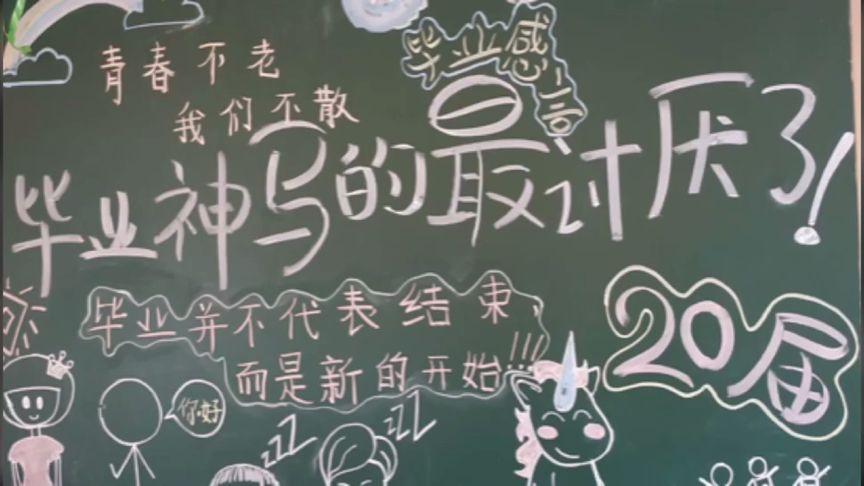 青春不老
我们不散
毕业感言
毕业神马的最讨厌了!
毕业并不代表结束,
而是新的开始!!!
20届
你好
zzz
zzz